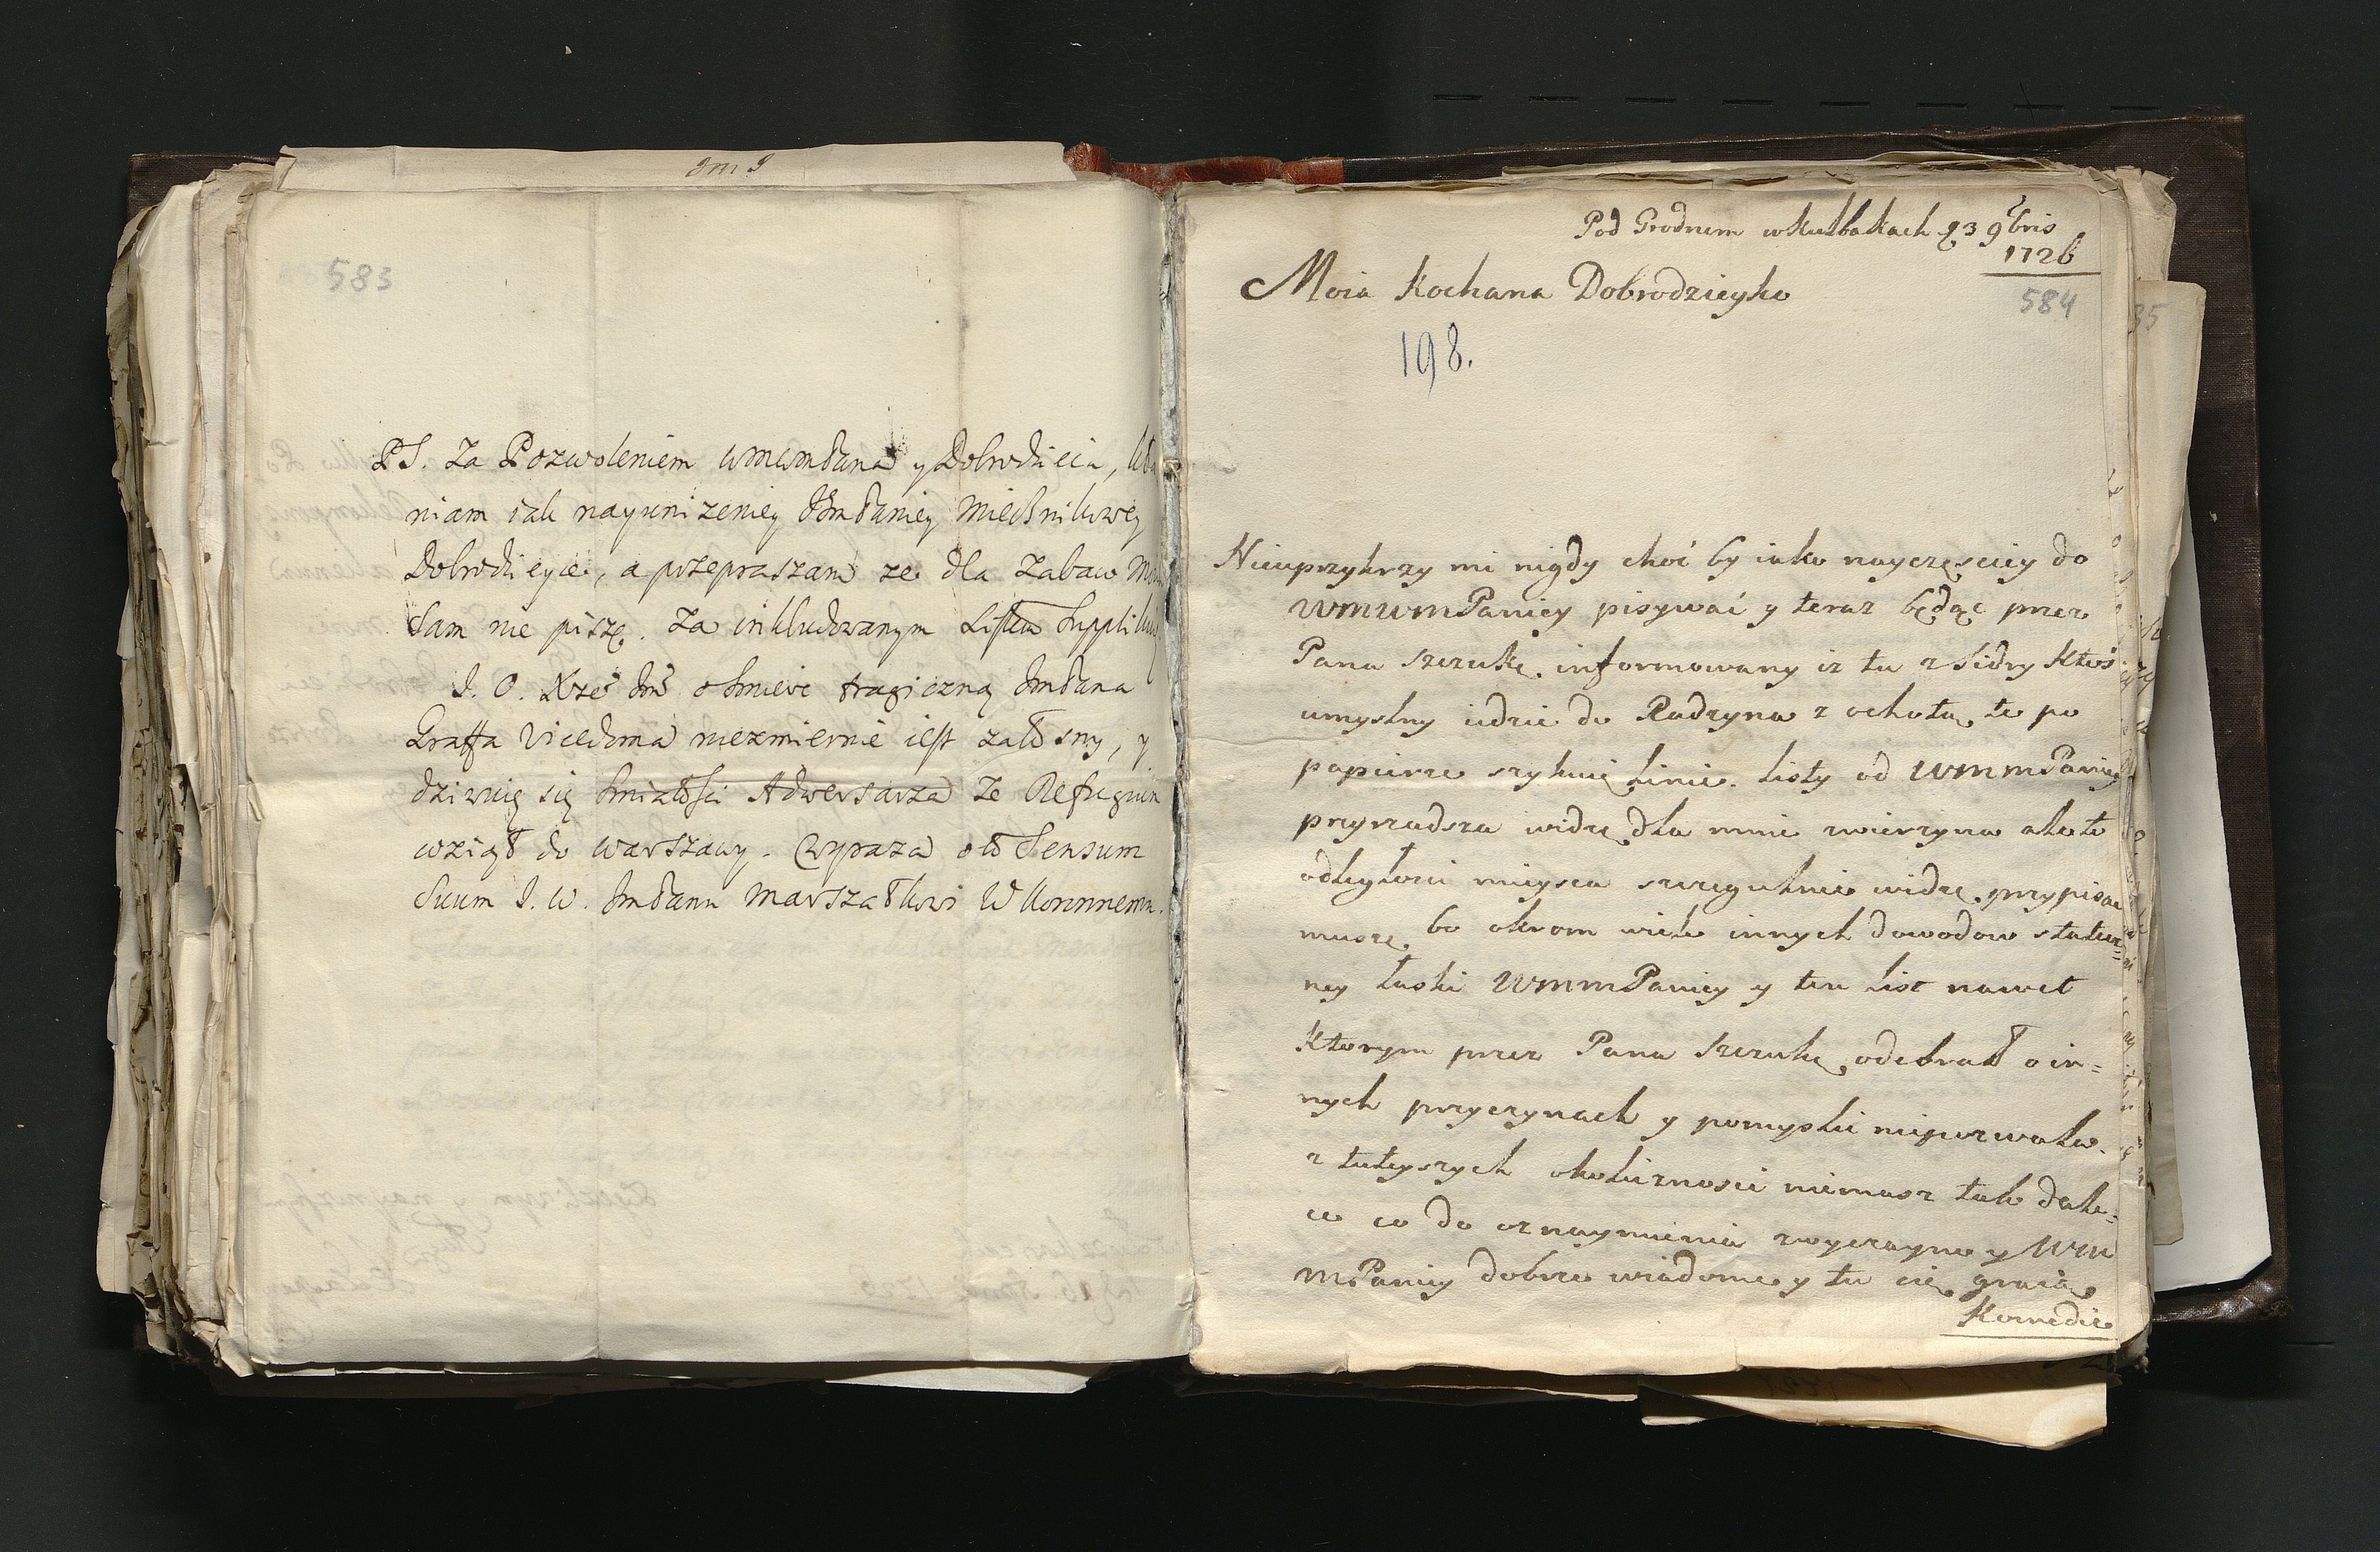 583
PS. Za Pozwoleniem WMWMPana y Dobrodzieia, kła
niam iak nayunizeniey JmPaniey Miecznikowey
Dobrodzieyce, a przepraszam ze dla zabaw
Sam nie piszę. Za inkludowanym Listem Supplikuię
J. O. Xże Jmć o śmierc tragiczną JmPana
Graffa Vicedoma niezmiernie iest załosny, y
dziwuię się śmiałości Adwersarza ze Refugium
wziął do Warszawy. Wyraza o tÿ Sensum
Suum J. W. JmPanu Marszałkowi W Koronnemu.
Pod Grodnem w Kulbakach 23 9bris
1726
584
Moia Kochana Dobrodzieyko
198.
Nieuprzykrzy mi nigdy choć by iako nayczęsciey do
WMWMPaniey pisywać y teraz będąc przez
Pana Szczukę informowany iz tu z Sidry Ktoś
umyslny iedzie do Radzyna z ochotą te po
papierze szykuię linie. Listy od WMMPaniey
przyrzadsza widzę dla mnie zwierzyna ale to
odległosci mieysca szczegulnie widzę przypisac
muszę, bo okrom wiele innych dowodow statecz=
ney łaski WMMPaniey y ten list nawet
Ktorym przez Pana Szczukę odebrał o in=
nych przyczynach y pomyslić niepozwala.
z tuteyszych okolicznosci niemasz tak dale=
ce co do oznaymienia zwyczayne y WM
MPaniey dobrze wiadome y tu się graią
Komedie